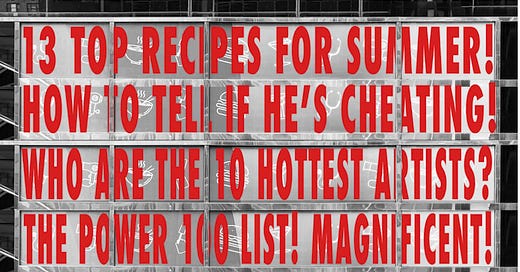 13 TOP RECIPES FOR SUMMER!
HOW TO TELL IF HE'S CHEATING!
WHO ARE THE 10 HOTTEST ARTISTS?
THE POWER 100 LIST! MAGNIFICENT!